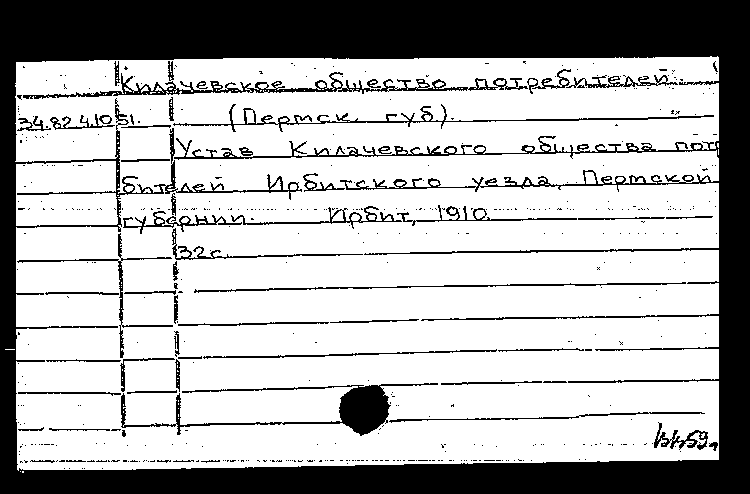 Килачевское общество потребителей.
34.82 4.10 51. (Пермск. губ).
Устав Килачевского общества пот
бителей Ирбитского уезда, Пермской
губернии. Ирбит, 1910.
32 с.